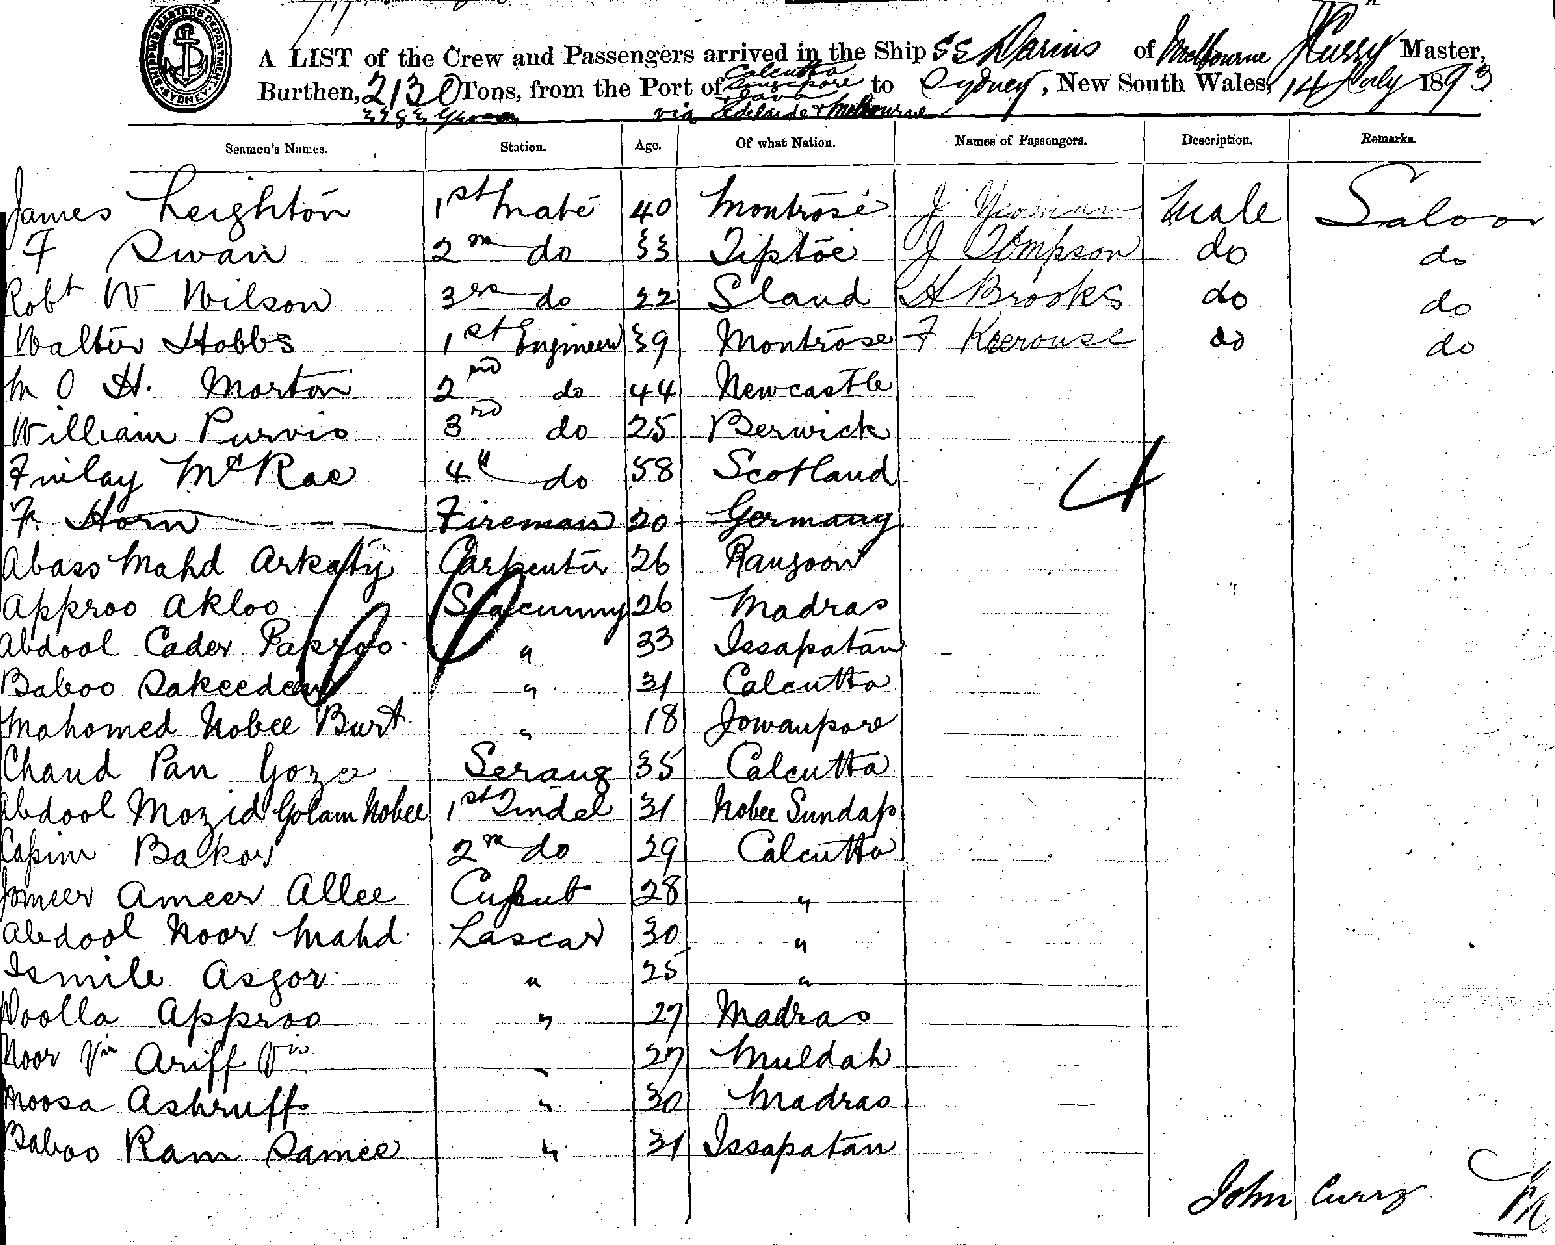 A LIST of the Crew and Passengers arrived in the Ship SS Darius of Melbourne J Curry Master,
Burthen, 2130 Tons, from the Port of Calcutta Singapore to Sydney, New South Wales, 14 July 1893
via Adelaide & Melbourne
Seamen's Names. Station. Age. Of what Nation. Names of Passengers. Description. Remarks.
James Leighton 1st Mate 40 Montrose J Yeoman Male Saloon
F Swan 2nd do 33 Tiptoe J Tompson do do
Robt W Wilson 3rd do 22 Sland H Brooks do do
Walter Hobbs 1st Engineer 39 Montrose F do do
M O H. Morton 2nd do 44 Newcastle
William Purvis 3rd do 25 Berwick
Finlay McRae 4th do 58 Scotland
4
F. Horn Fireman 20 Germany
Abass Mahd Arkaty Carpenter 26 Rangoon
Approo Akloo Seacunny 26 Madras
Abdool Cader Pakroo " 33 Issapatan
Baboo Sakeedeen " 31 Calcutta
Mahomed Nobee Burt " 18 Jowanpore
Chand Pan Goza Serang 35 Calcutta
Abdool Mozid Golam Nobee 1st Tindel 31 Nobee Sundap
Casim Bakor 2nd do 29 Calcutta
Jomeer Ameer Allee 28 "
Abdool Noor Mahd Lascar 30 "
Ismile Asgor " 25 "
Woolla Approo " 27 Madras
Noor Din Ariff Din " 27 Muldah
Moosa Ashruff " 30 Madras
Baboo Ram Samee " 31 Issapatan
John Curry